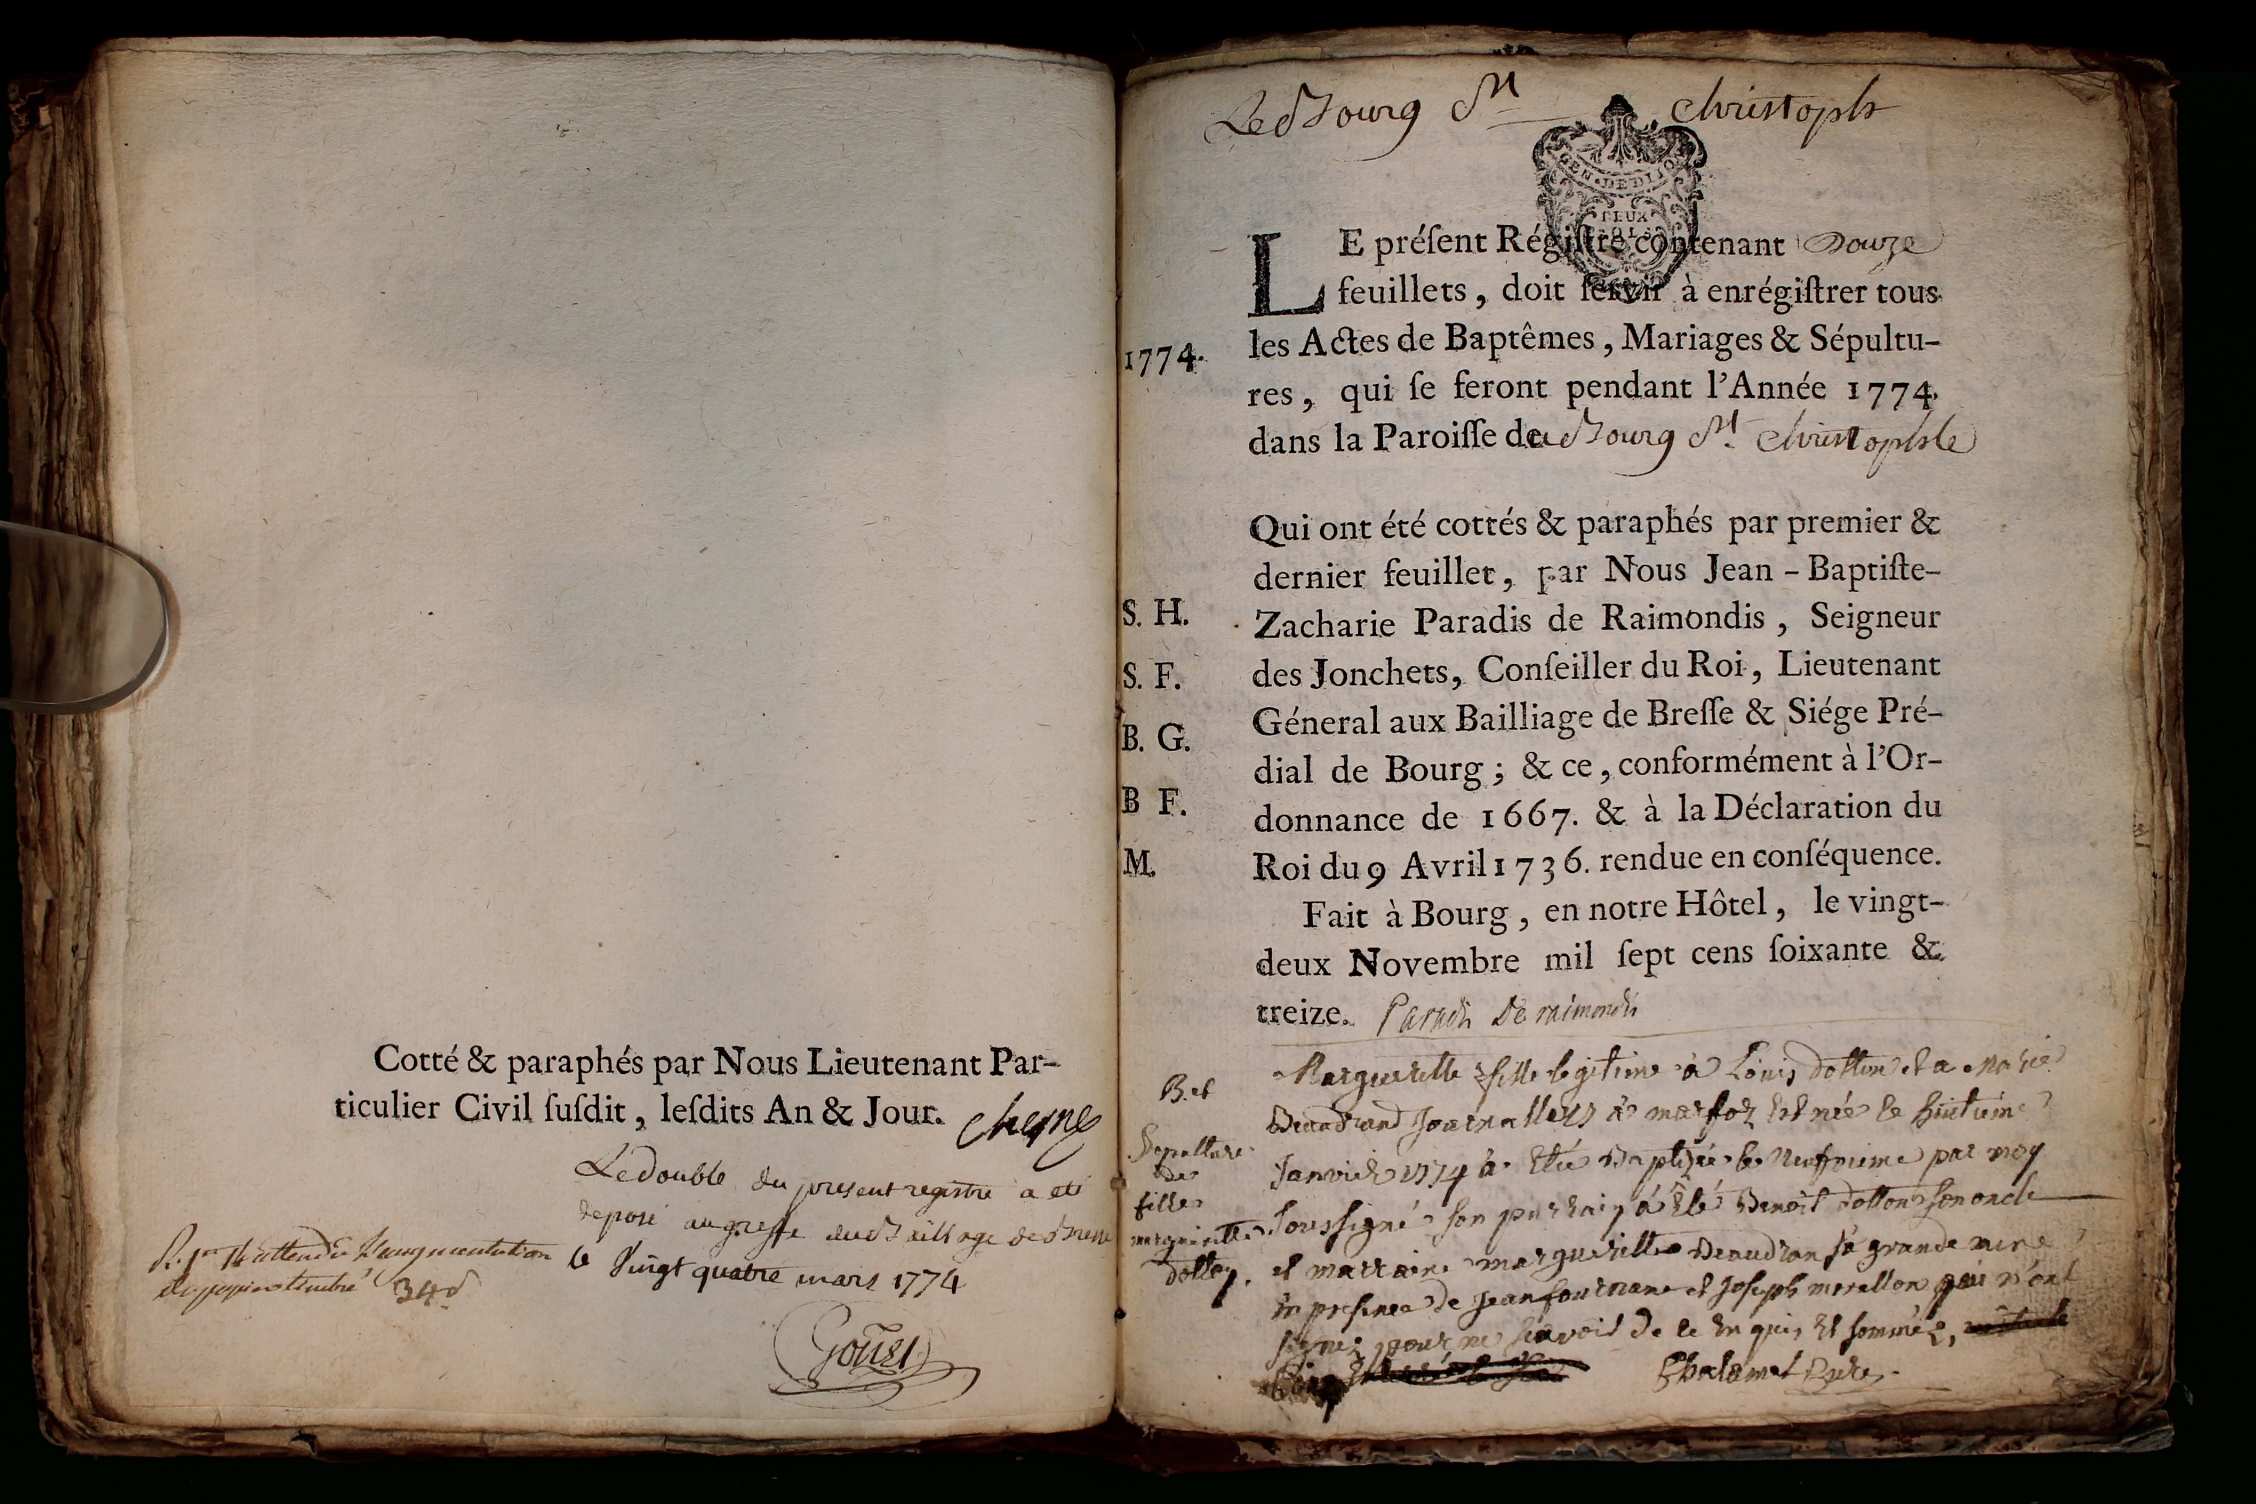 Cotté & paraphés par Nous Lieutenant Par-
ticulier Civil ſuſdit, leſdits An & Jour. Cheyne
Le double du present registre a eté
deposé au greffe du Bailliage de Bresse
le Vingt quatre mars 1774
34 d
Gouët
Le Bourg St Christophe
GEN. DE DIJON
DEUX
SOLS
LE préſent Régiſtre contenant Douze
feuillets, doit ſervir à enrégiſtrer tous
1774. les Actes de Baptêmes, Mariages & Sépultu-
res, qui ſe feront pendant l'Année 1774.
dans la Paroiſſe de Bourg St. Christophle
Qui ont été cottés & paraphés par premier &
dernier feuillet, par Nous Jean-Baptiſte-
S. H. Zacharie Paradis de Raimondis, Seigneur
S. F. des Jonchets, Conſeiller du Roi, Lieutenant
B. G. Géneral aux Bailliage de Breſſe & Siége Pré-
dial de Bourg; & ce, conformément à l'Or-
B F. donnance de 1667. & à la Déclaration du
M. Roi du 9 Avril 1736. rendue en conſéquence.
Fait à Bourg, en notre Hôtel, le vingt-
deux Novembre mil ſept cens ſoixante &
treize. Paradis De raimondis
B. et
Sepulture
de
fille
margueritte
dotton.
Margueritte fille legitime à Louis dotton et a Marie
Beaudrand Journalliers à marfoz est née le huitieme
Janvier 1774 à Eté Baptizée le Neufvieme par moy
soussigné son parrain à Eté Benoit dotton son oncle
et marraine margueritte Beaudran sa grande mere
en presence de Jean fournane et Joseph morellon qui n'ont
signez pour ne sçavoir de ce Enquis Et sommez,
Chalamel Curé